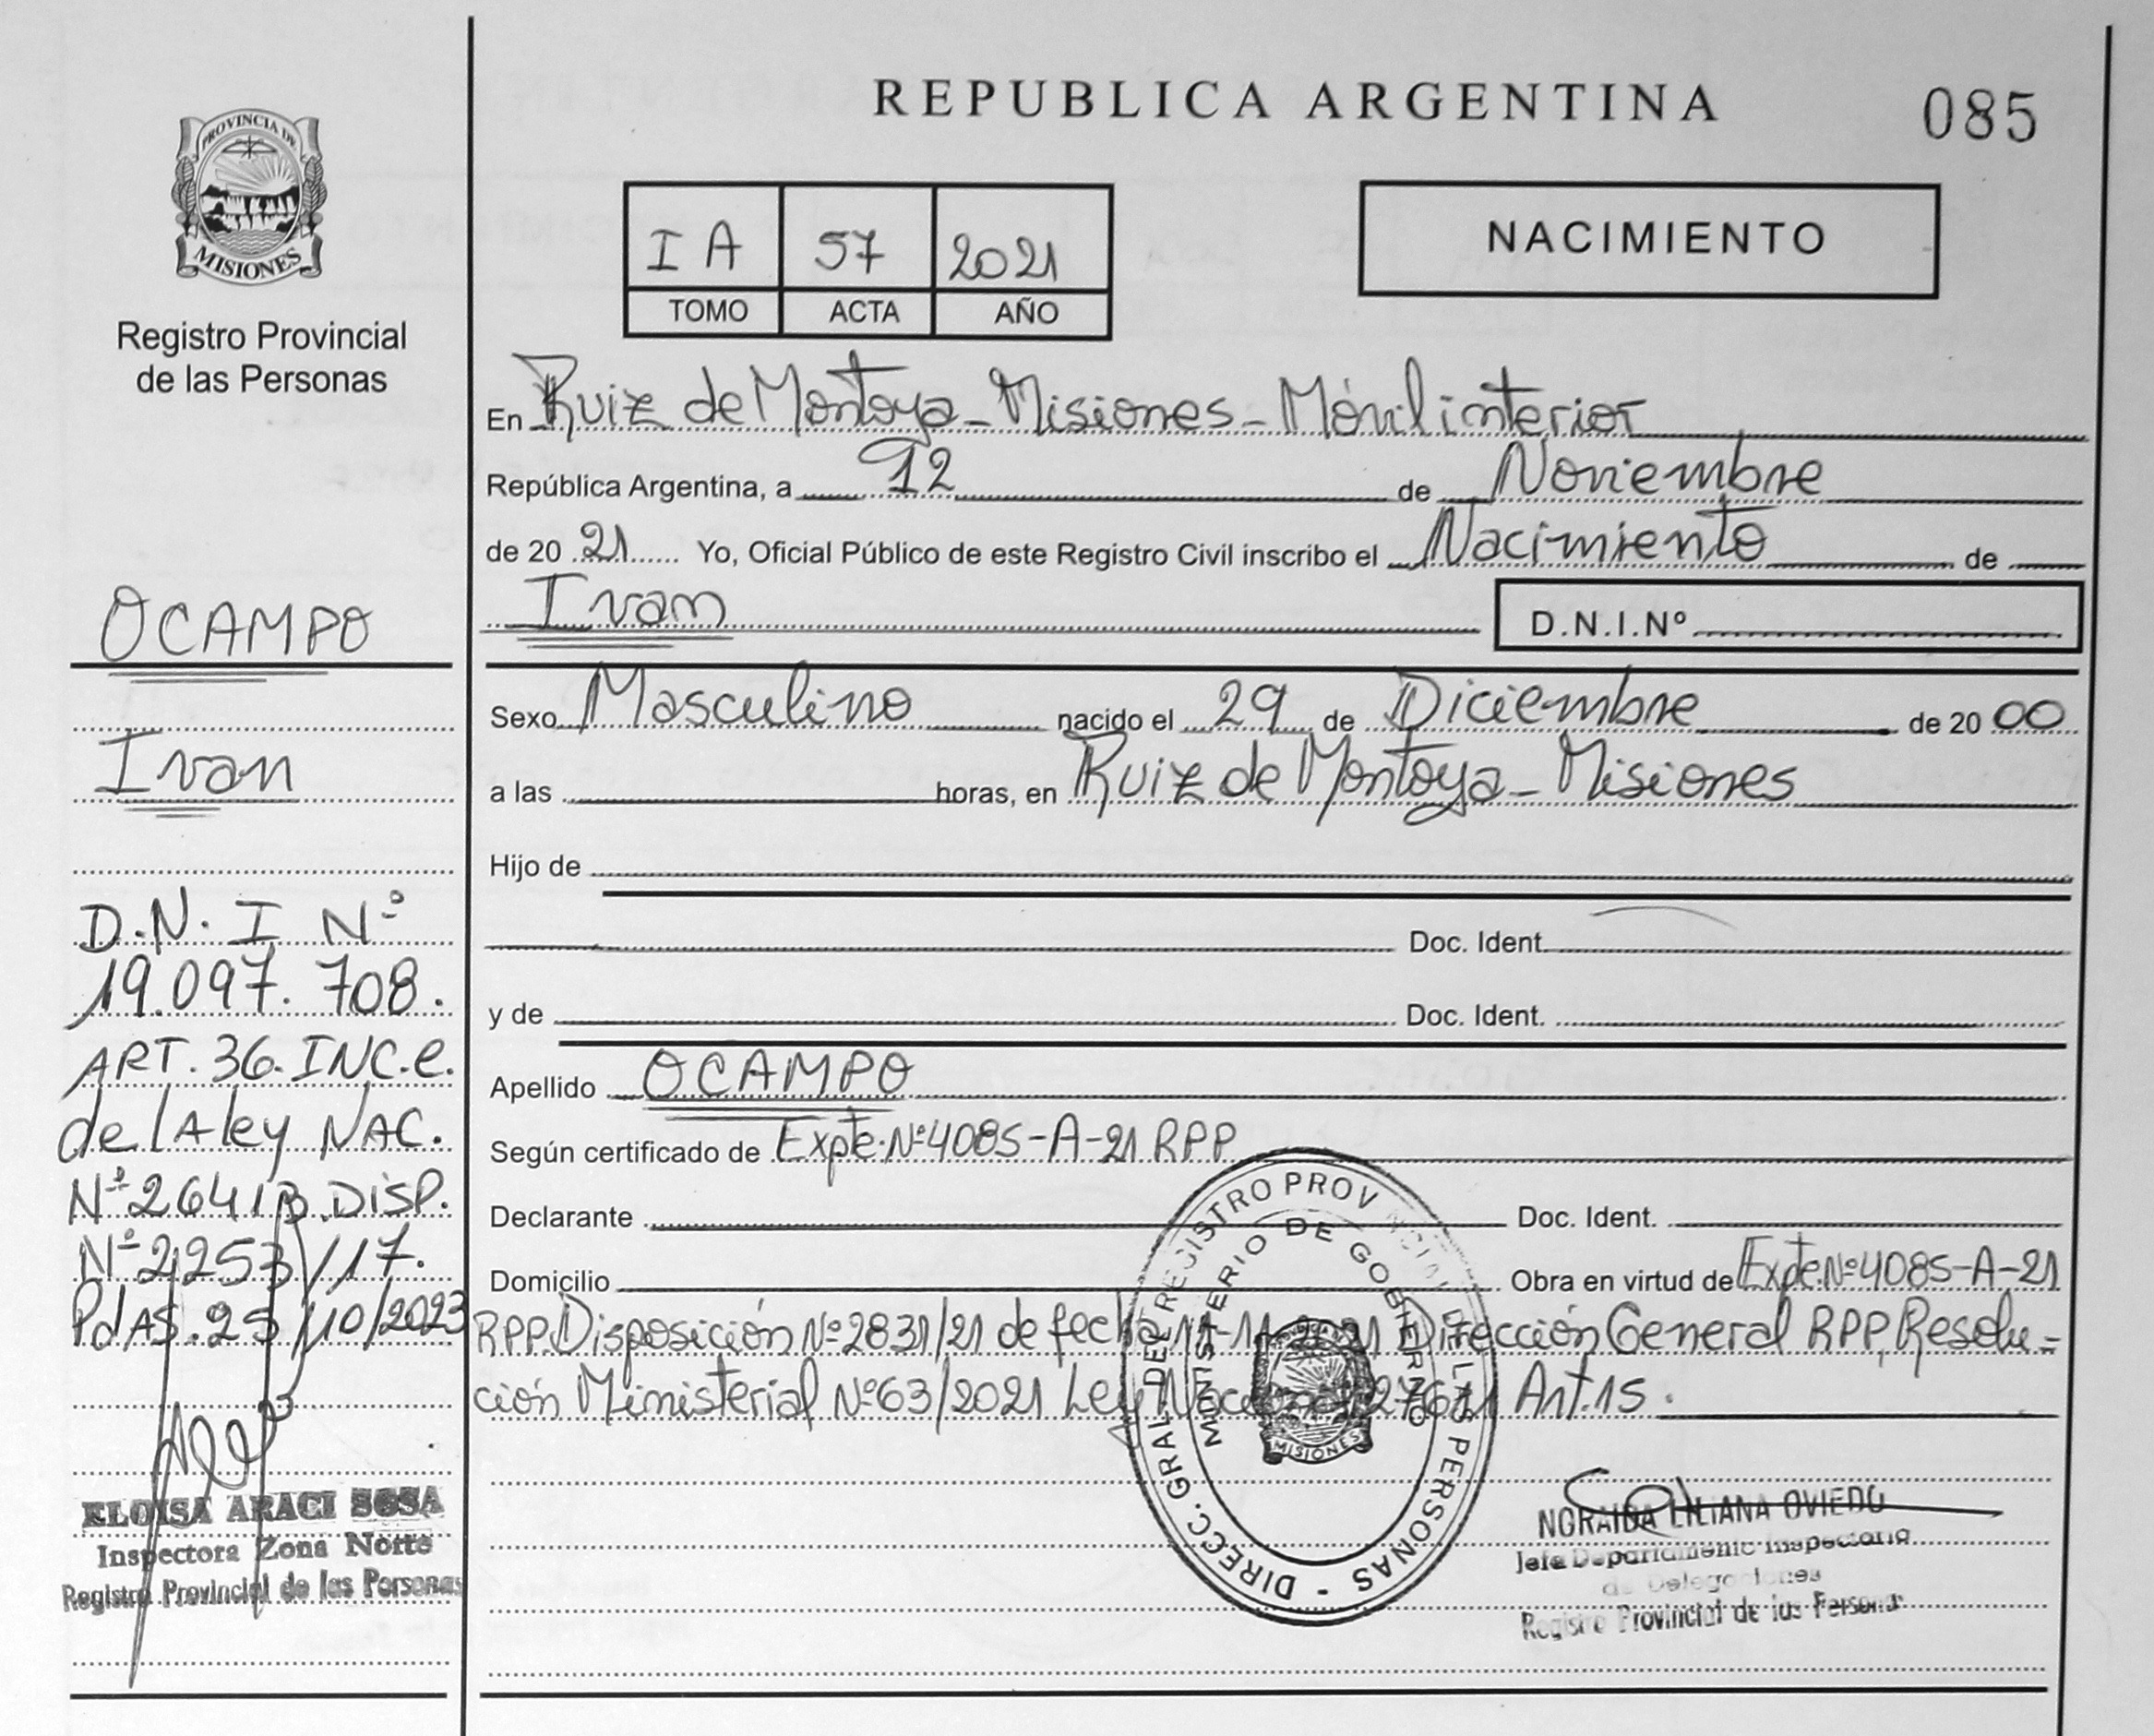 REPUBLICA ARGENTINA
085
PROVINCIA DE
MISIONES
Registro Provincial
de las Personas
I A 57 2021
TOMO ACTA AÑO
NACIMIENTO
En Ruiz de Montoya - Misiones - Móvil interior
República Argentina, a 12 de Noviembre
de 20 21 Yo, Oficial Público de este Registro Civil inscribo el Nacimiento de
Ivan D.N.I.Nº
Sexo Masculino nacido el 29 de Diciembre de 20 00
a las horas, en Ruiz de Montoya - Misiones
Hijo de
Doc. Ident.
y de Doc. Ident.
Apellido OCAMPO
Según certificado de Expte. Nº 4085-A-21 RPP
Declarante Doc. Ident.
Domicilio Obra en virtud de Expte. Nº 4085-A-21
RPP Disposición Nº 2831/21 de fecha 11-11-2021 Dirección General RPP, Resolu-
ción Ministerial Nº 63/2021 Ley Nacional Art. 15.
OCAMPO
Ivan
D.N.I Nº
19.097.708.
ART. 36. INC. e.
de lA ley NAC.
Nº 26413. DISP.
Nº 2253/17.
PdAS. 25/10/2023
ELOISA ARACI SOSA
Inspectora Zona Norte
Registro Provincial de las Personas
DIRECC. GRAL. DEL REGISTRO PROVINCIAL DE LAS PERSONAS -
MINISTERIO DE GOBIERNO
MISIONES
NORAIDA LILIANA OVIEDO
Jefa Departamento Inspectoria
de Delegaciones
Registro Provincial de las Personas